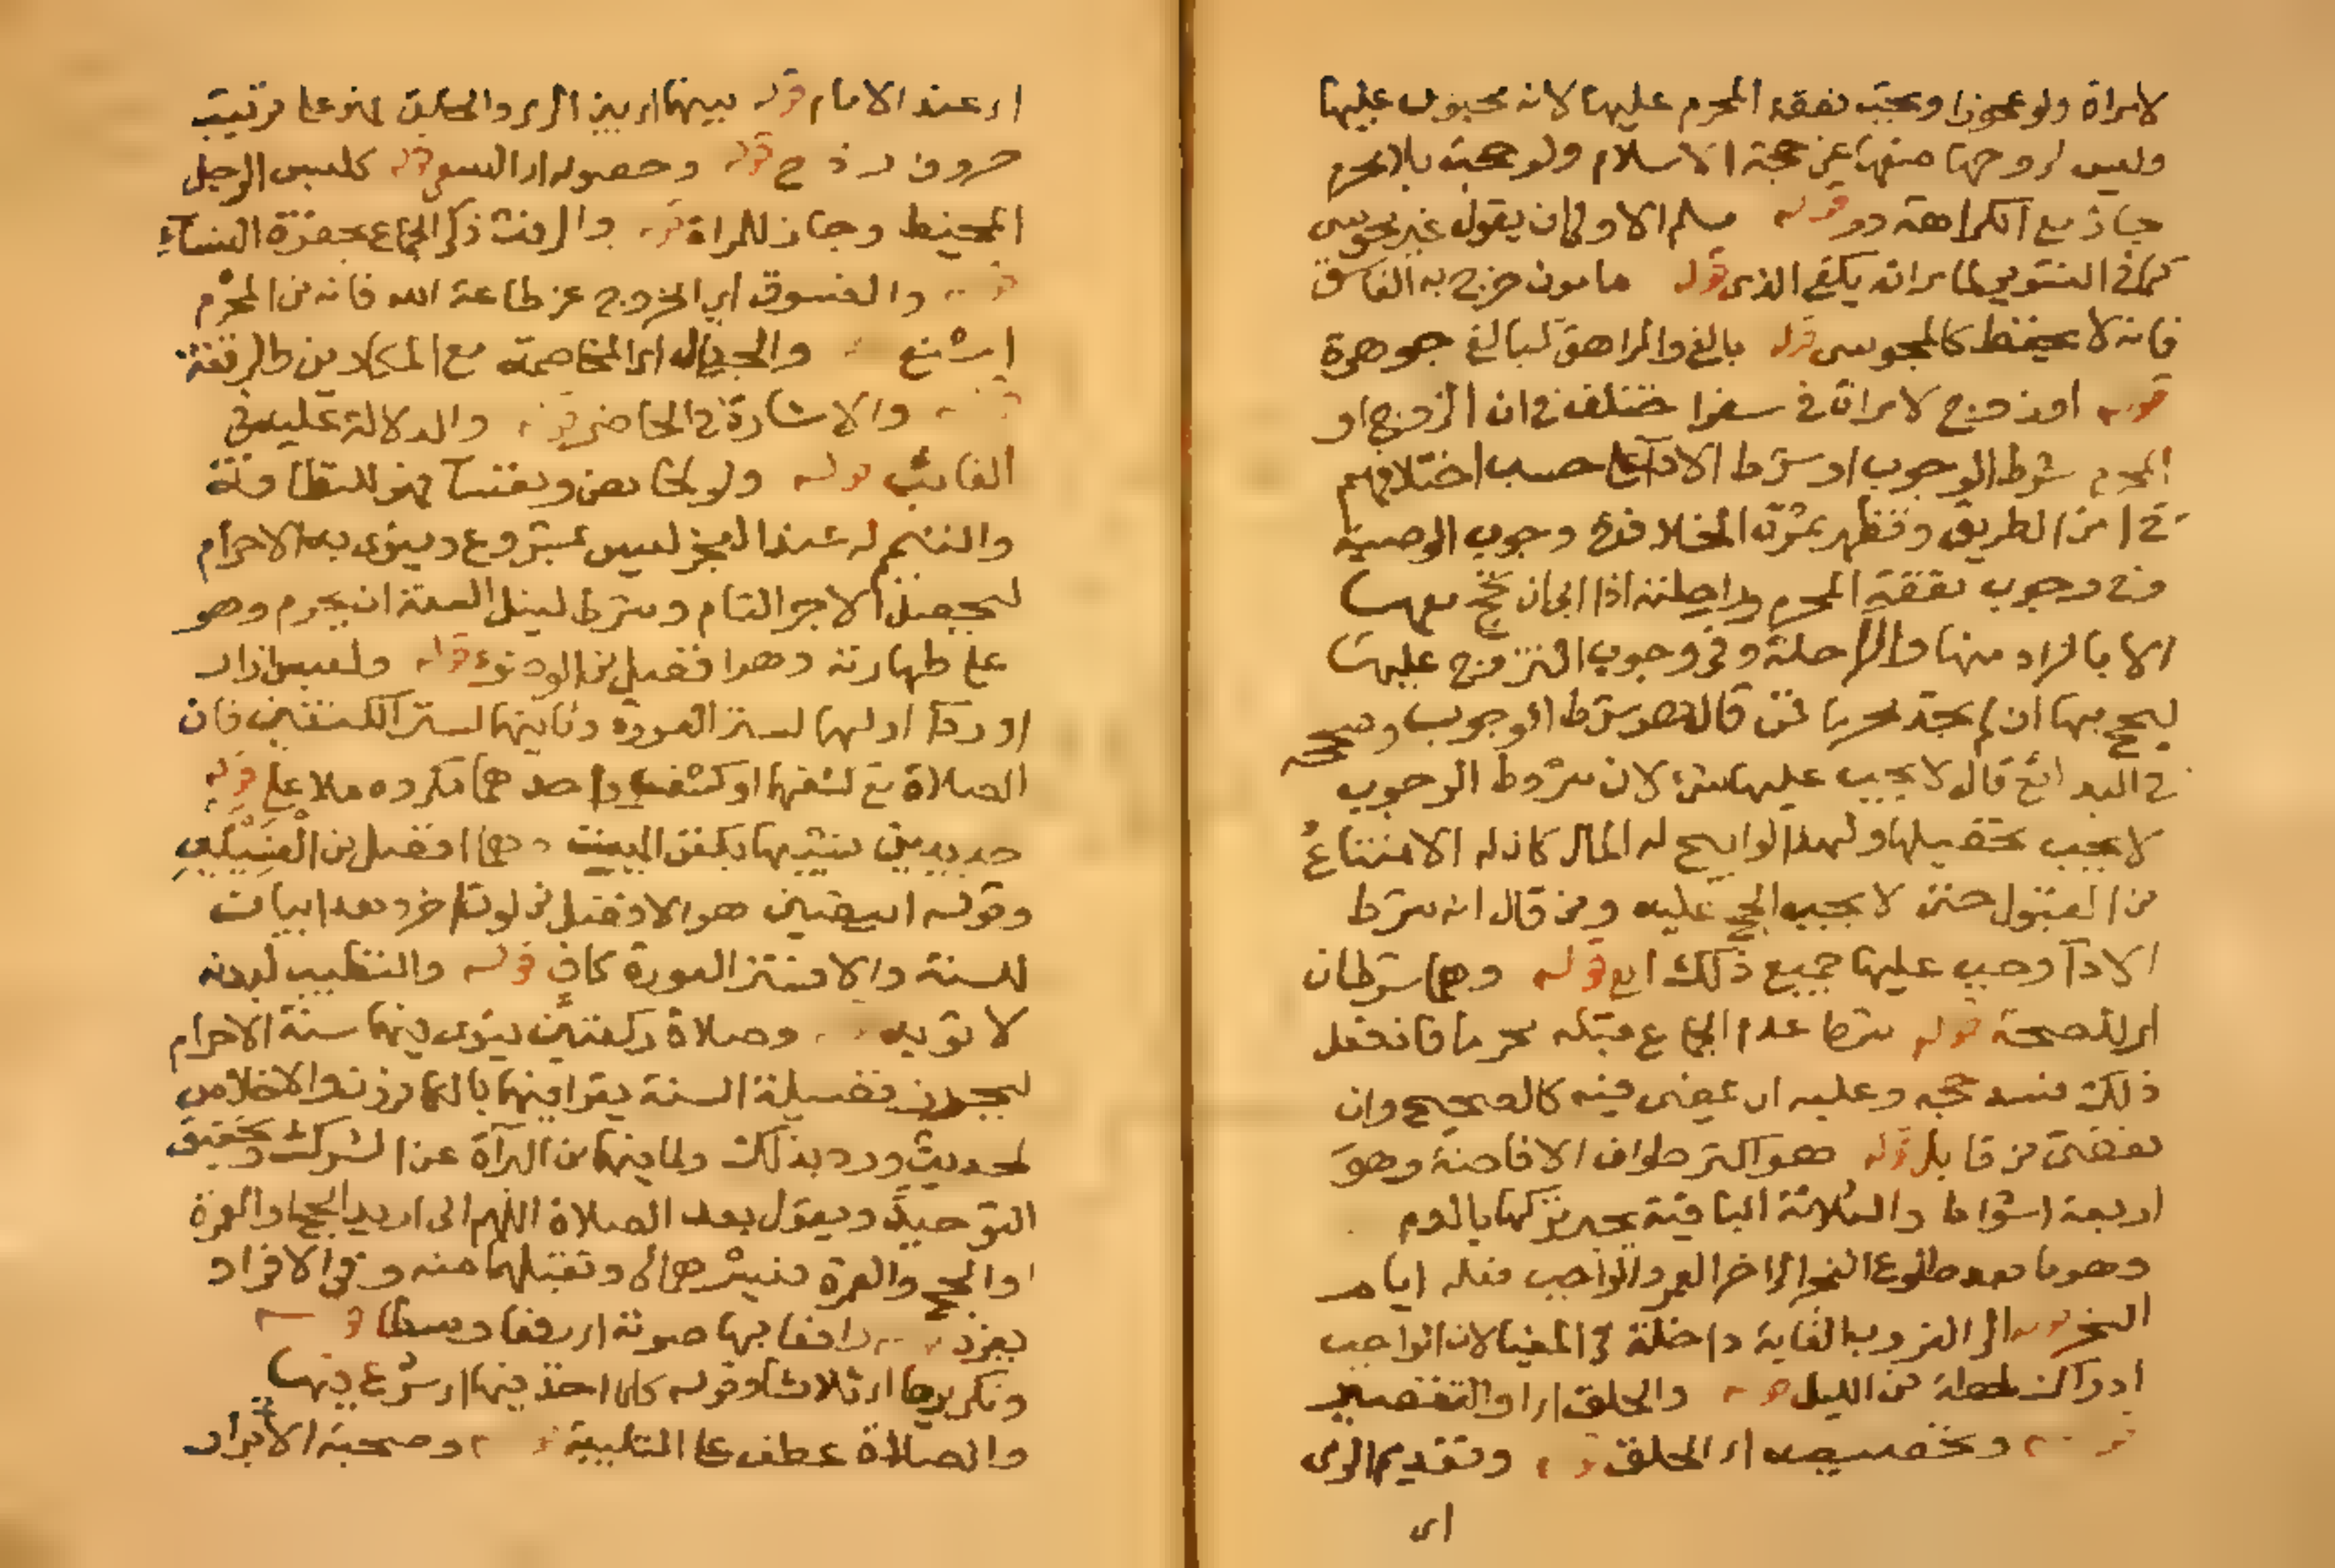 لامراة ولو عجوزا وتجب نفقة المحرم عليها لانه محبوس عليها
وليس لزوجها منعها عن حجة الاسلام ولو حجت بلا محرم
جاز مع الكراهة در قوله مسلم الاولى ان يقول غير مجوسي
كما في التنوير يكفي الذمى قوله مامون خرج به الفاسق
فانه لا يحفظ كالمجوسى قوله بالغ والمراهق كبالغ جوهرة
قوله او زوج لامراة في سفر اختلف في ان الزوج او
المحرم شرط الوجوب او شرط الادآ على حسب اختلافهم
في امن الطريق وتظهر ثمرة الخلاف في وجوب الوصية
وفي وجوب نفقة المحرم وراحلته اذا ابى ان يحج معها
الا بالزاد منها والراحلة وفي وجوب التزوج عليها
ليحج بها ان لم تجد محرما فمن قال هو شرط الوجوب وصححه
في البدائع قال لا يجب عليها شئ لان شروط الوجوب
لا يجب تحصيلها ولهذا لو ابيح له المال كان له الامتناع
من القبول حتى لا يجب الحج عليه ومن قال انه شرط
الادآ وجب عليها جميع ذلك قوله وهما شرطان
اى للصحة قوله شرط عدم الجماع قبله محرما فان فعل
ذلك فسد حجه وعليه ان يمضى فيه كالصحيح وان
يقضى من قابل قوله هو اكثر طواف الافاضة وهو
اربعة اشواط والثلاثة الباقية يجبر تركها بالدم
وهو ما بعد طلوع الفجر الى اخر العمر والواجب فعله ايام
النحر قوله الى الغروب الغاية داخلة في المغيا لان الواجب
ادراك لحظة من الليل قوله والحلق اى او التقصير
قوله وتخصيصه اى الحلق قوله وتقديم الرمى
اى
اى عند الامام قوله بينهما اى بين الرمى والحلق فهو على ترتيب
حروف ر ذ ح قوله وحصوله اى السعى قوله كلبس الرجل
المخيط وجاز للمراة قوله والرفث ذكر الجماع بحضرة النسآء
قوله والفسوق اى الخروج عن طاعة الله فانه من المحرم
اشنع والجدال اى المخاصمة مع المكارين والرفقة
قوله والاشارة في الحاضر قوله والدلالة عليه في
الغائب قوله ولو لحائض ونفسآ فهو للنظافة
والتيمم له عند العجز ليس بمشروع وينوى به الاحرام
ليحصل الاجر التام وشرط لنيل السنة ان يحرم وهو
على طهارته وهو افضل من الوضوء قوله ولبس ازار
او ردآ اولهما لستر العورة وثانيهما لستر الكتفين فان
الصلاة مع كشفهما او كشف احدهما مكروه ملا على قوله
جديدين تشبيها بكفن الميت وهما افضل من الغسيلين
وقوله ابيضين هو الافضل من لون اخر وهذا بيان
للسنة والا فستر العورة كاف قوله والتطيب لبدنه
لا ثوبه وصلاة ركعتين ينوى بهما سنة الاحرام
ليحرز فضيلة السنة يقرا فيهما بالكافرون والاخلاص
لحديث ورد بذلك ولما فيهما من البرآة عن الشرك وتحقيق
التوحيد ويقول بعد الصلاة اللهم انى اريد الحج او العمرة
او الحج والعمرة فيسرهما لى وتقبلهما منه وفي الافراد
يفرد رافعا بها صوته اى رفعا وسطا قوله
وتكريرها اى ثلاثا وقوله كلما اخذ فيها اى شرع فيها
والصلاة عطف على التلبية قوله وصحبة الابرار